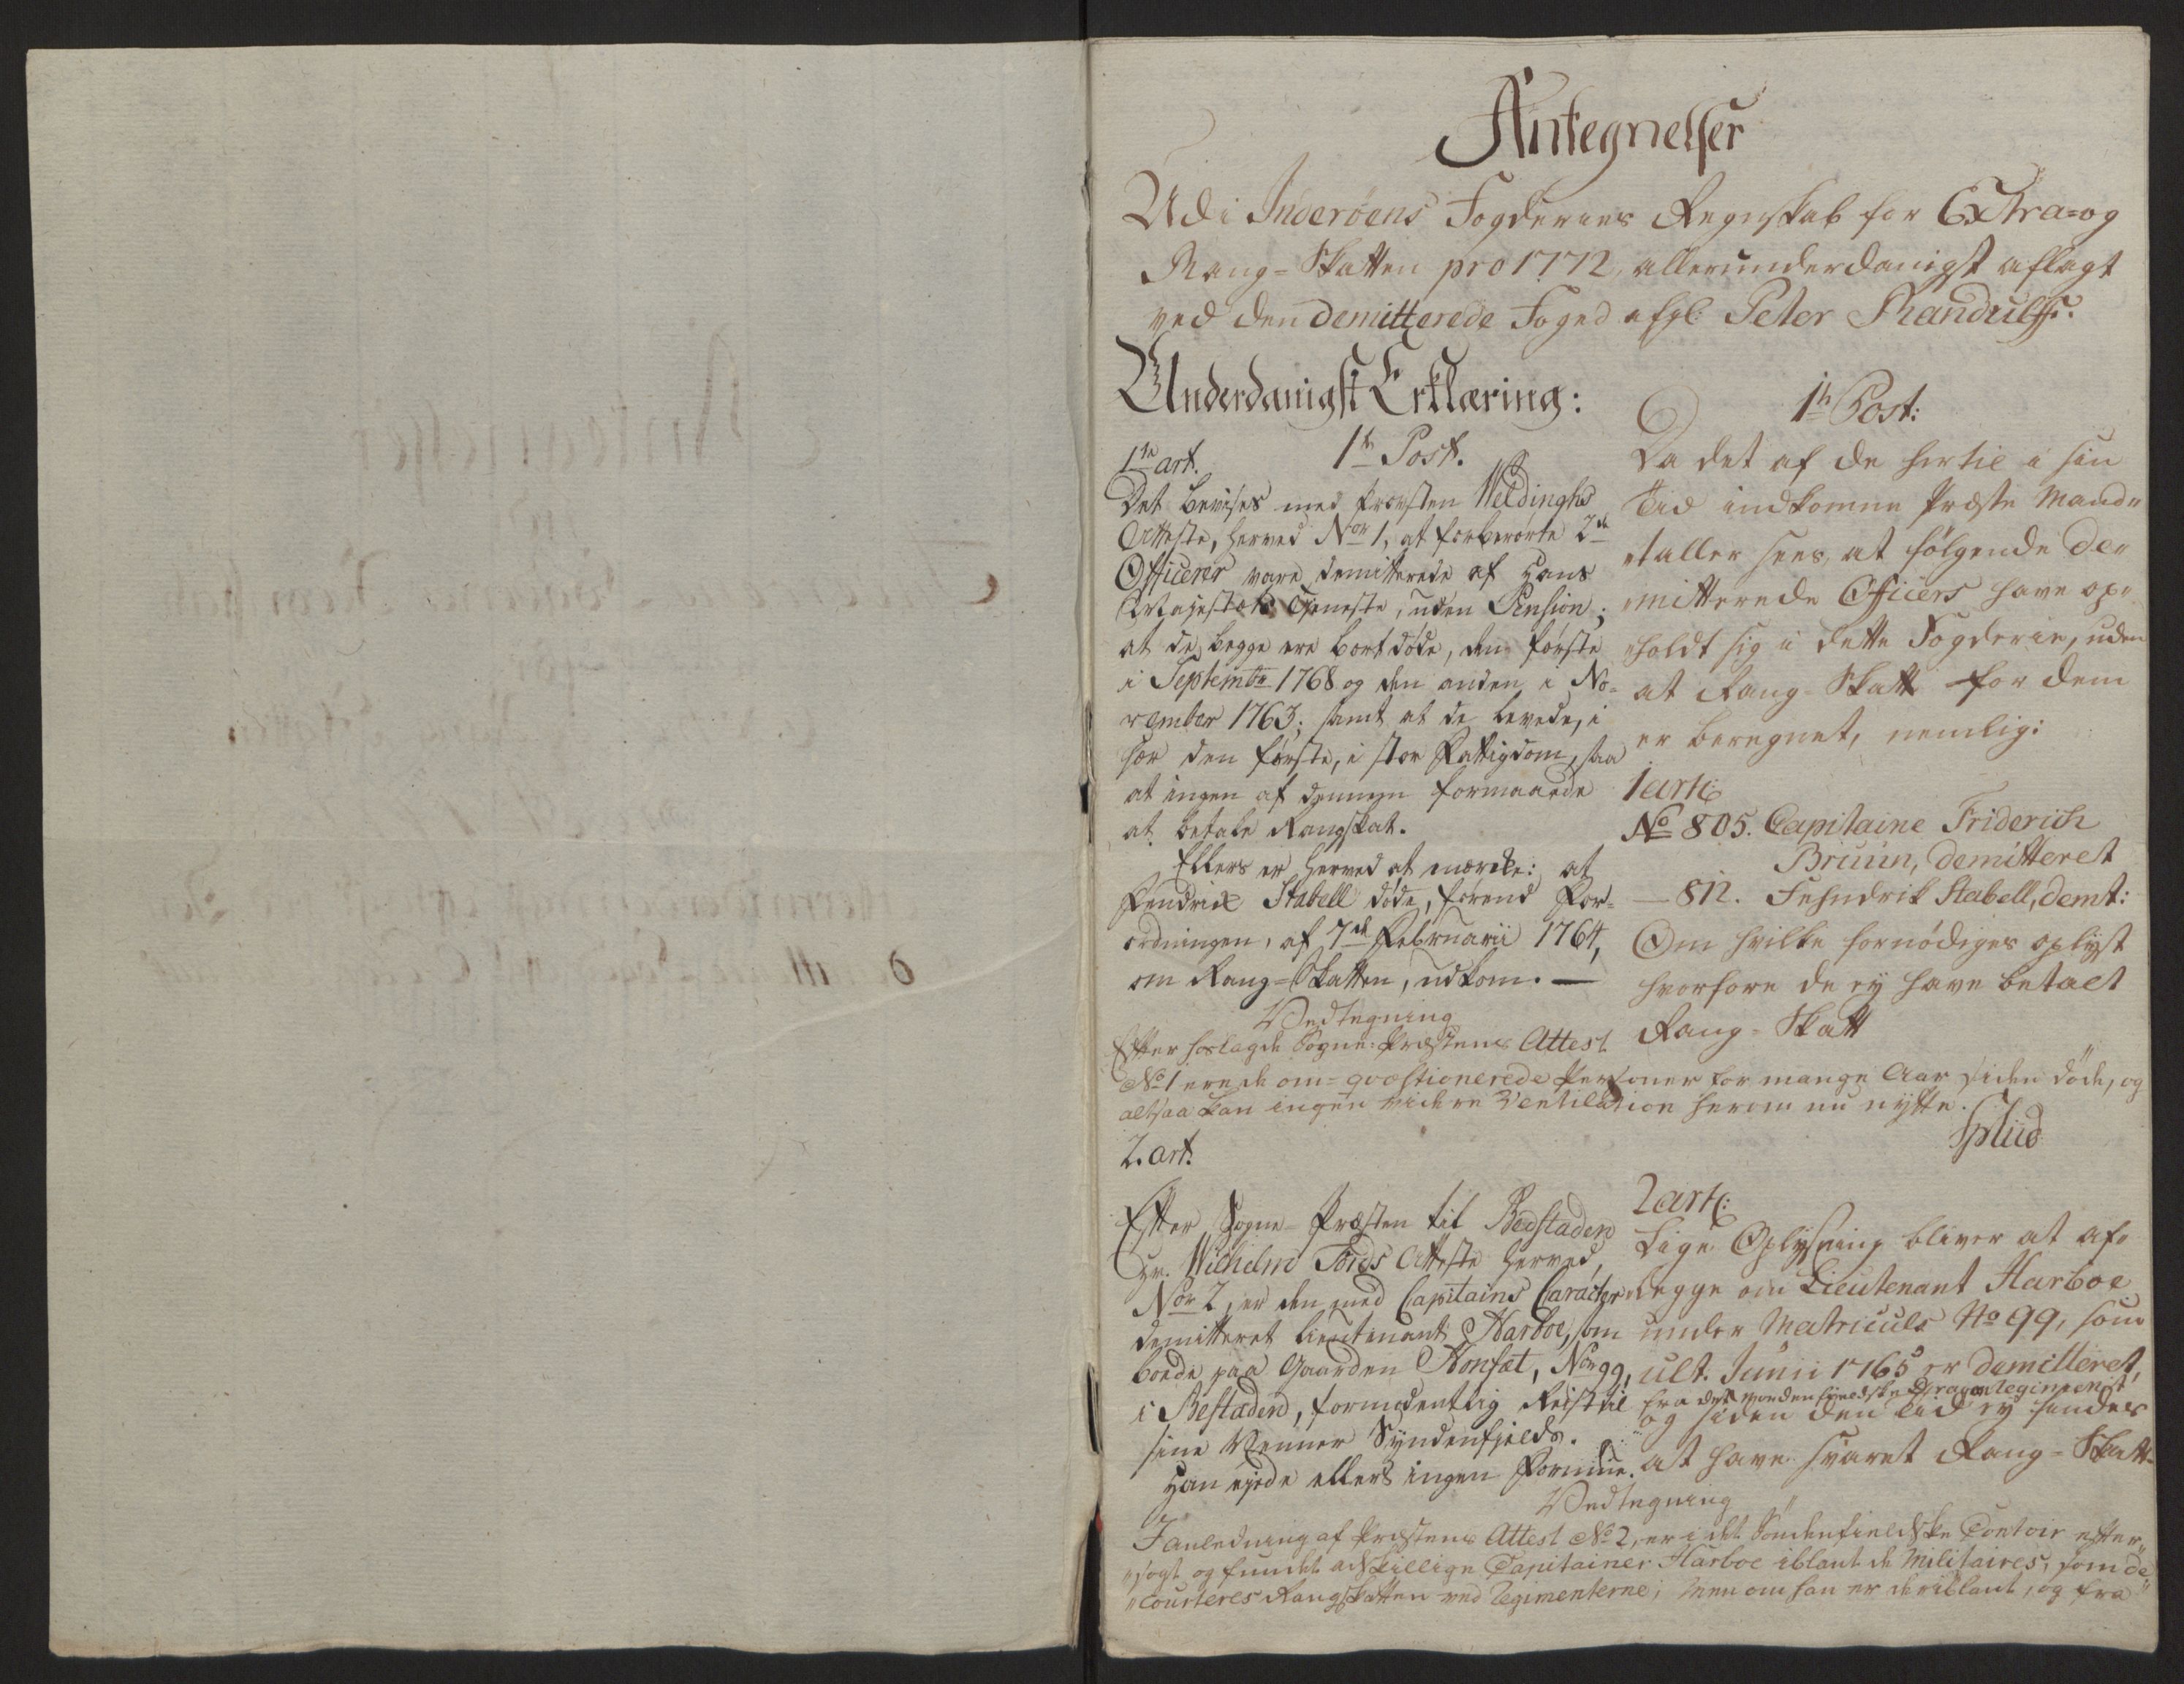 Antegnelser
Udi Inderøens Fogderies Regnskab for Extra- og
Rang-Skatten pro 1772, allerunderdanigst aflagt
ved den demitterede Foged afgl: Peter Randulff.
Underdanigst Erklæring:
1te art. 1te Post.
Det bevises med Provsten Weldinghs
Atteste, herved Nor 1, at forberørte 2de
Officerer vare demitterede af Hans
Majestæts Tjeneste, uden Pension;
at de begge ere bortdøde, den første
i Septembr 1768 og den anden i No-
vember 1763; samt at de levede, i
sær den første, i stor Fattigdom, saa
at ingen af dennem formaaede
at betale Rangskat.
Ellers er herved at mærke: at
Fendrick Stabell døde, førend For-
ordningen, af 7de Februarii 1764,
om Rang-Skatten, udkom. —
1te Post:
Da det af de hertil i sin
Tid indkomne Præste Mand-
taller sees, at følgende de-
mitterede Officers have op-
holdt sig i dette Fogderie, uden
at Rang-Skatt for dem
er beregnet, nemlig:
1 art:
No 805. Capitaine Friderich
Bruun, demitteret
— 812. Fehndrik Stabell, demt:
Om hvilke fornødiges oplyst
hvorfore de ey have betalt
Rang-Skatt
Vedtegning
Efter hoslagde Sogne-Præstens Attest
No 1 ere de om-qvæstionerede Personer for mange Aar siden døde, og
altsaa kan ingen videre Ventilation herom nu nytte.
2. art.
Efter Sogne-Præsten til Bedstaden
Hr. Wilhelm Tords Atteste herved,
Nor 2, er den med Capitains Caracter
demitteret Lieutenant Harboe, som
boede paa Gaarden Konsat, Nor 99,
i Bestaden, formodentlig Reist til
sine Venner Syndenfjelds.
Han ejede ellers ingen Formue.
2 art:
Lige Oplysning bliver at af-
legge om Lieutenant Harboe
under Matriculs No 99, som
ult. Junii 1765 er demitteret,
fra det Nordenfieldske Dragon Regiment
og siden den tid ey findes
at have svaret Rang-Skatt.
Vedtegning
I anledning af Præstens Attest No 2, er i det Søndenfieldske Contoir efter-
søgt og fundet adskillige Capitainer Harboe iblant de Militaires, som de-
courteres Rangskatten ved Regimenterne; Men om han er deriblant, og fra